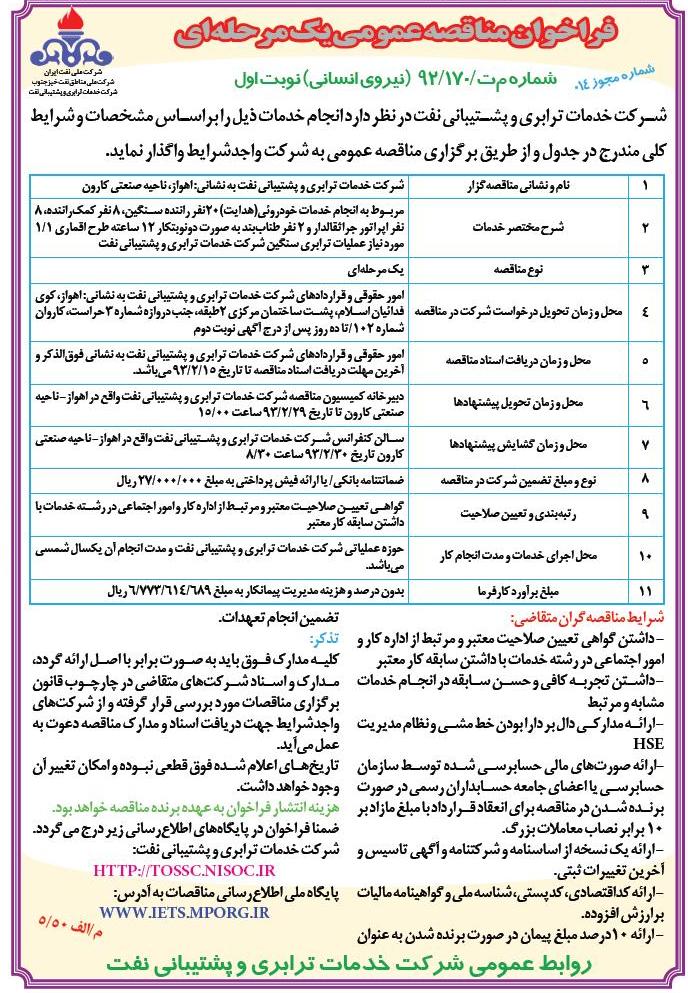 فراخوان مناقصه عمومی یک مرحله‌ای
شرکت ملی نفت ایران
شرکت ملی مناطق نفت خیز جنوب
شرکت خدمات ترابری و پشتیبانی نفت
شماره مجوز ۰۱۴.
شماره م‌ت/۹۲/۱۷۰ (نیروی انسانی) نوبت اول
شرکت خدمات ترابری و پشتیبانی نفت در نظر دارد انجام خدمات ذیل را براساس مشخصات و شرایط
کلی مندرج در جدول و از طریق برگزاری مناقصه عمومی به شرکت واجد شرایط واگذار نماید.
۱ نام و نشانی مناقصه‌گزار شرکت خدمات ترابری و پشتیبانی نفت به نشانی: اهواز، ناحیه صنعتی کارون
۲ شرح مختصر خدمات
مربوط به انجام خدمات خودروئی(هدایت)۲۰نفر راننده سنگین، ۸ نفر کمک راننده، ۸
نفر اپراتور جراثقالدار و ۲ نفر طناب‌بند به صورت دونوبتکار ۱۲ ساعته طرح اقماری ۱/۱
مورد نیاز عملیات ترابری سنگین شرکت خدمات ترابری و پشتیبانی نفت
۳ نوع مناقصه یک مرحله‌ای
۴ محل و زمان تحویل درخواست شرکت در مناقصه
امور حقوقی و قراردادهای شرکت خدمات ترابری و پشتیبانی نفت به نشانی: اهواز، کوی
فدائیان اسلام، پشت ساختمان مرکزی ۲طبقه، جنب دروازه شماره ۳ حراست، کاروان
شماره ۱۰۲/تا ده روز پس از درج آگهی نوبت دوم
۵ محل و زمان دریافت اسناد مناقصه
امور حقوقی و قراردادهای شرکت خدمات ترابری و پشتیبانی نفت به نشانی فوق‌الذکر و
آخرین مهلت دریافت اسناد مناقصه تا تاریخ ۹۳/۲/۱۵ می‌باشد.
۶ محل و زمان تحویل پیشنهادها
دبیرخانه کمیسیون مناقصه شرکت خدمات ترابری و پشتیبانی نفت واقع در اهواز-ناحیه
صنعتی کارون تا تاریخ ۹۳/۲/۲۹ ساعت ۱۵/۰۰
۷ محل و زمان گشایش پیشنهادها
سالن کنفرانس شرکت خدمات ترابری و پشتیبانی نفت واقع در اهواز-ناحیه صنعتی
کارون تاریخ ۹۳/۲/۳۰ ساعت ۸/۳۰
۸ نوع و مبلغ تضمین شرکت در مناقصه ضمانتنامه بانکی/ یا ارائه فیش پرداختی به مبلغ ۲۷/۰۰۰/۰۰۰ ریال
۹ رتبه‌بندی و تعیین صلاحیت
گواهی تعیین صلاحیت معتبر و مرتبط از اداره کار و امور اجتماعی در رشته خدمات با
داشتن سابقه کار معتبر
۱۰ محل اجرای خدمات و مدت انجام کار
حوزه عملیاتی شرکت خدمات ترابری و پشتیبانی نفت و مدت انجام آن یکسال شمسی
می‌باشد.
۱۱ مبلغ برآورد کارفرما بدون درصد و هزینه مدیریت پیمانکار به مبلغ ۶/۷۷۳/۶۱۴/۶۸۹ ریال
شرایط مناقصه‌گران متقاضی:
-داشتن گواهی تعیین صلاحیت معتبر و مرتبط از اداره کار و
امور اجتماعی در رشته خدمات با داشتن سابقه کار معتبر
-داشتن تجربه کافی و حسن سابقه در انجام خدمات
مشابه و مرتبط
-ارائه مدارکی دال بر دارا بودن خط مشی و نظام مدیریت
HSE
-ارائه صورت‌های مالی حسابرسی شده توسط سازمان
حسابرسی یا اعضای جامعه حسابداران رسمی در صورت
برنده شدن در مناقصه برای انعقاد قرارداد با مبلغ مازاد بر
۱۰ برابر نصاب معاملات بزرگ.
-ارائه یک نسخه از اساسنامه و شرکتنامه و آگهی تاسیس و
آخرین تغییرات ثبتی.
-ارائه کداقتصادی، کدپستی، شناسه ملی و گواهینامه مالیات
بر ارزش افزوده.
-ارائه ۱۰درصد مبلغ پیمان در صورت برنده شدن به عنوان
تضمین انجام تعهدات.
تذکر:
کلیه مدارک فوق باید به صورت برابر با اصل ارائه گردد،
مدارک و اسناد شرکت‌های متقاضی در چارچوب قانون
برگزاری مناقصات مورد بررسی قرار گرفته و از شرکت‌های
واجدشرایط جهت دریافت اسناد و مدارک مناقصه دعوت به
عمل می‌آید.
تاریخ‌های اعلام شده فوق قطعی نبوده و امکان تغییر آن
وجود خواهد داشت.
هزینه انتشار فراخوان به عهده برنده مناقصه خواهد بود.
ضمنا فراخوان در پایگاه‌های اطلاع‌رسانی زیر درج می‌گردد.
شرکت خدمات ترابری و پشتیبانی نفت:
HTTP://TOSSC.NISOC.IR
پایگاه ملی اطلاع‌رسانی مناقصات به آدرس:
WWW.IETS.MPORG.IR
م/الف ۵/۵۰
روابط عمومی شرکت خدمات ترابری و پشتیبانی نفت